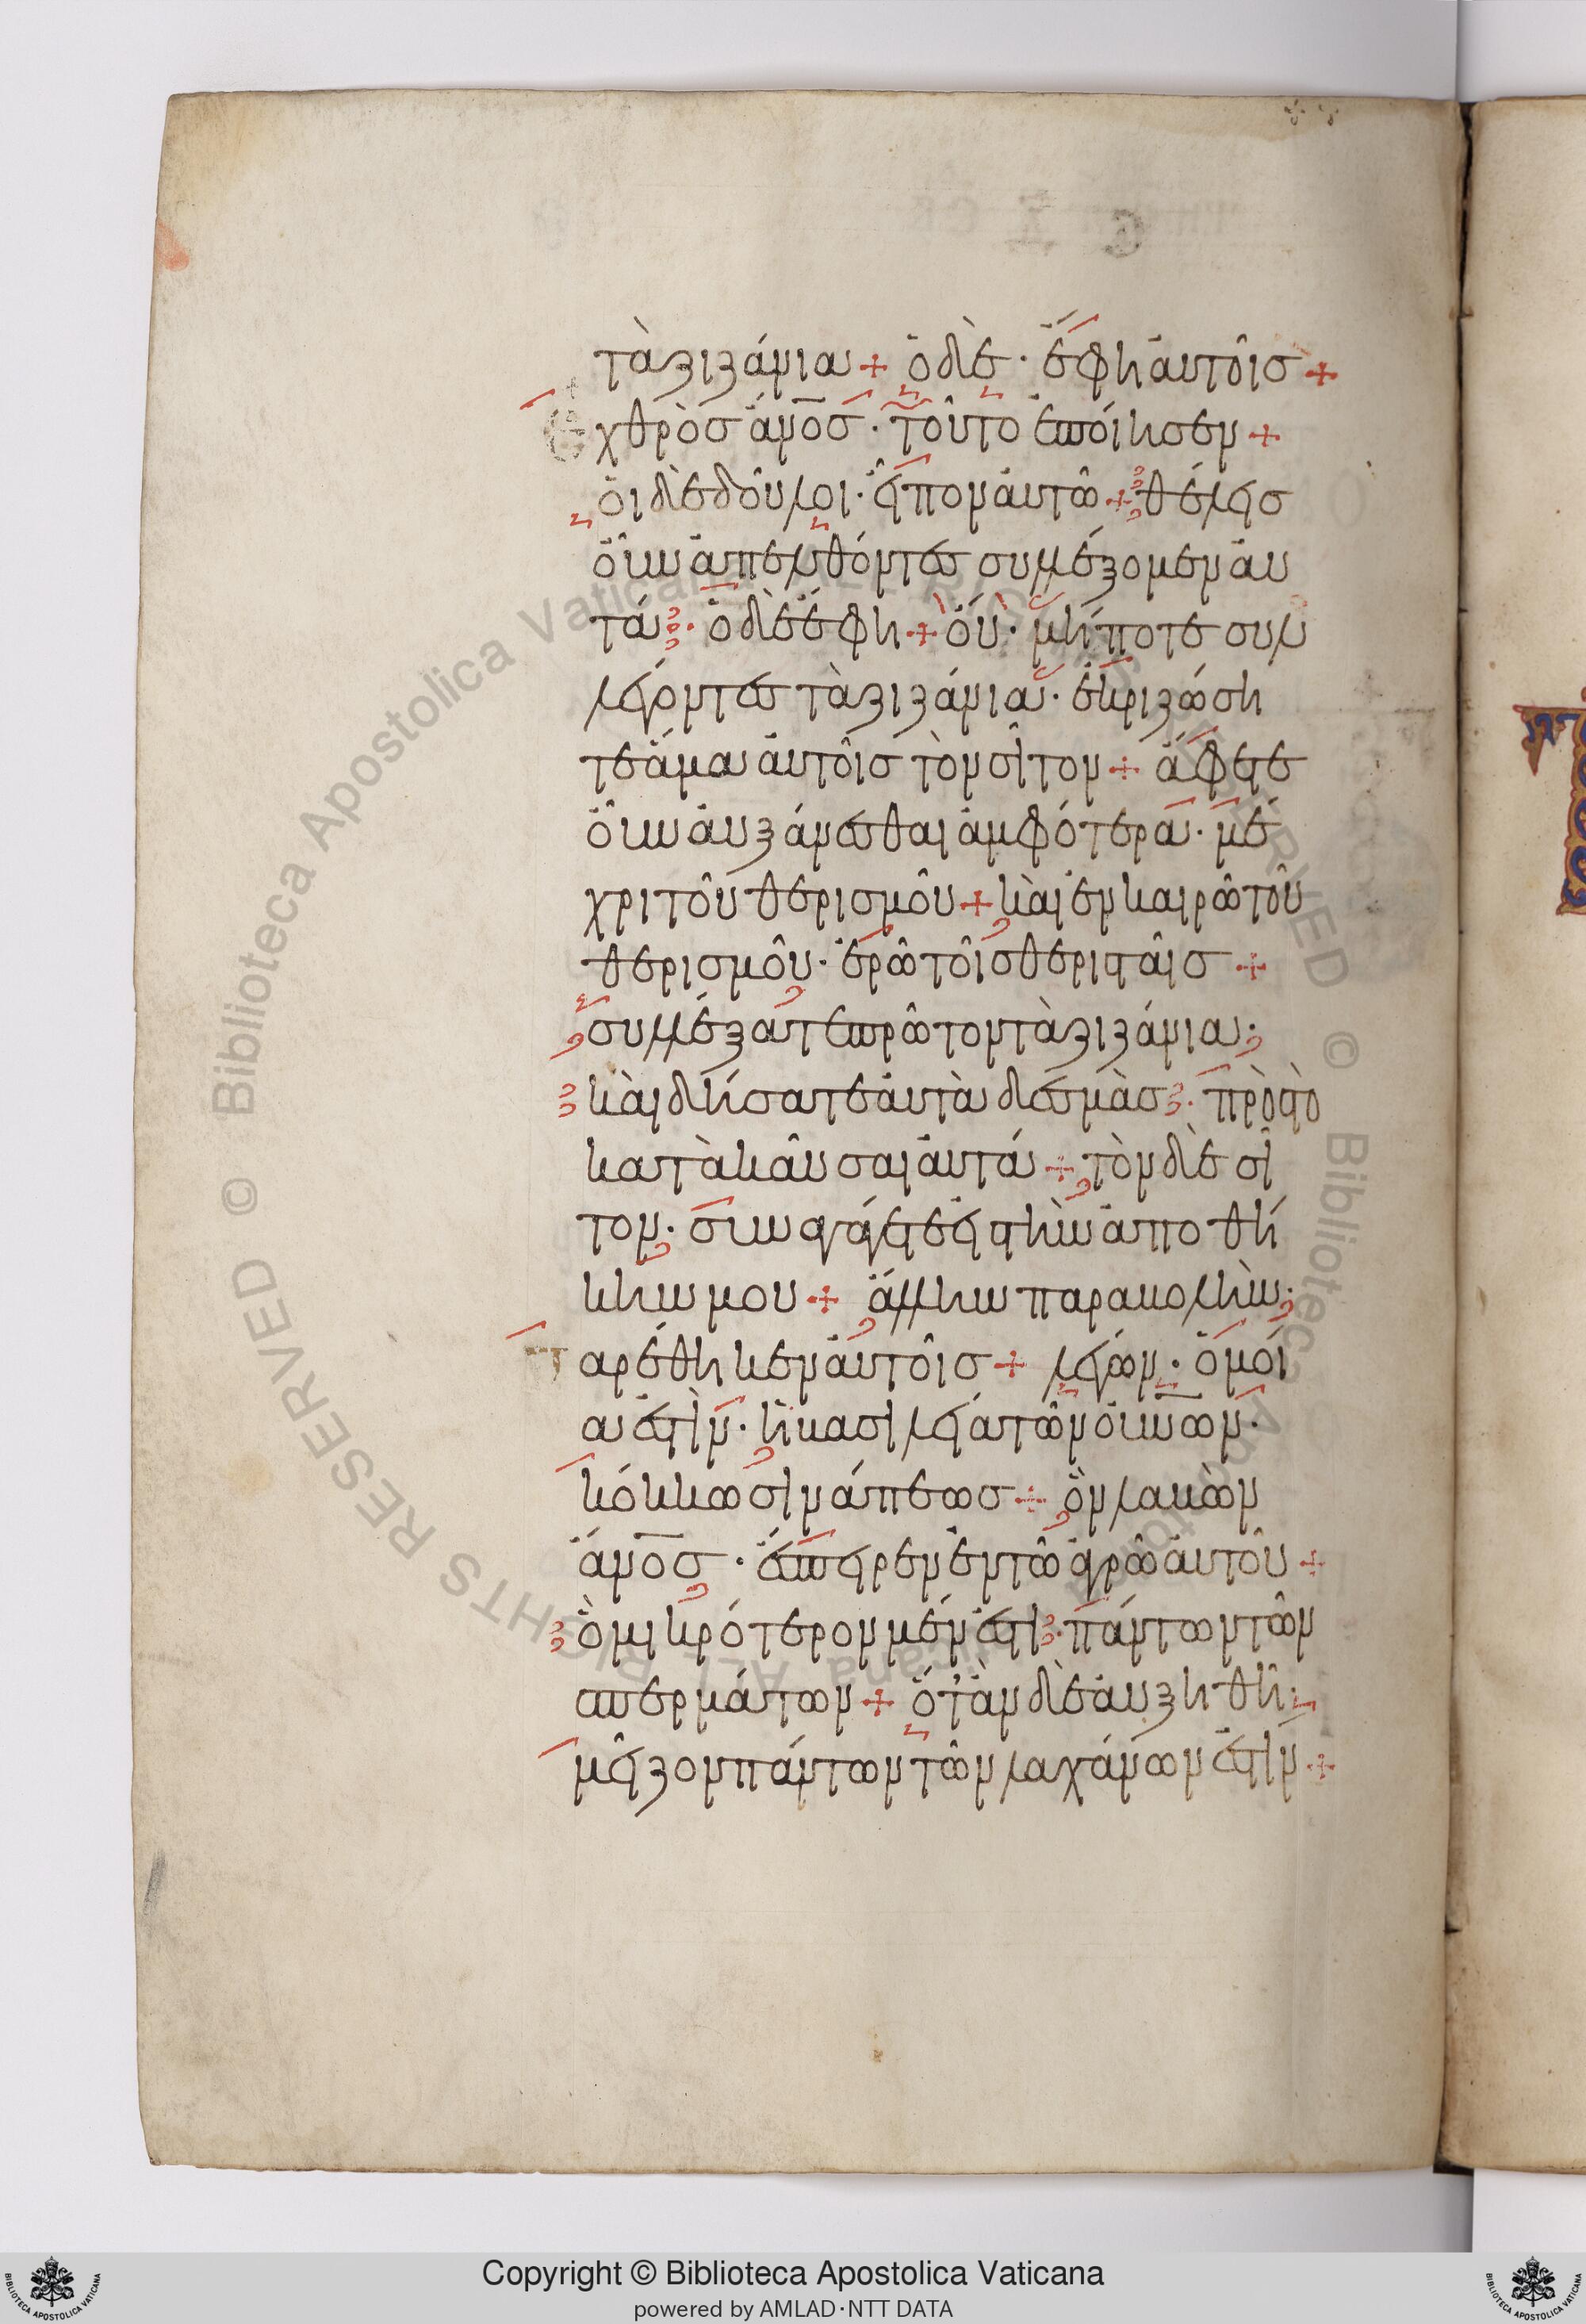 τὰ ζιζάνια + ὁ δὲ · ἔφη αὐτοῖς +
Ἐχθρὸς ἄνος · τοῦτο ἐποίησεν +
οἱ δὲ δοῦλοι · εἶπον αὐτῶ + θέλεις
οὖν ἀπελθόντες συλλέξομεν αὐ
τά · ὁ δὲ ἔφη + οὔ · μήποτε συλ
λέγοντες τὰ ζιζάνια · ἐκριζώση
τε ἅμα αὐτοῖς τὸν σῖτον + ἄφετε
οὖν αὐξάνεσθαι ἀμφότερα · μέ
χρι τοῦ θερισμοῦ + καὶ ἐν καιρῶ τοῦ
θερισμοῦ · ἐρῶ τοῖς θερισταῖς +
συλλέξατε πρῶτον τὰ ζιζάνια ·
καὶ δήσατε αὐτὰ δεσμὰς · πρὸς τὸ
κατακαῦσαι αὐτά + τὸν δὲ σῖ
τον · συναγάγετε εἰς τὴν ἀποθή
κην μου + ἄλλην παραβολὴν ·
Παρέθηκεν αὐτοῖς + λέγων · ὁμοί
α ἐστὶν · ἡ βασιλεία τῶν οὐνῶν ·
κόκκω σινάπεως + ὃν λαβὼν
ἄνος · ἔσπειρεν ἐν τῶ ἀγρῶ αὐτοῦ +
ὃ μικρότερον μέν ἐστι · πάντων τῶν
σπερμάτων + ὅταν δὲ αὐξηθῆ ·
μεῖζον πάντων τῶν λαχάνων ἐστὶν +
Copyright © Biblioteca Apostolica Vaticana
powered by AMLAD·NTT DATA